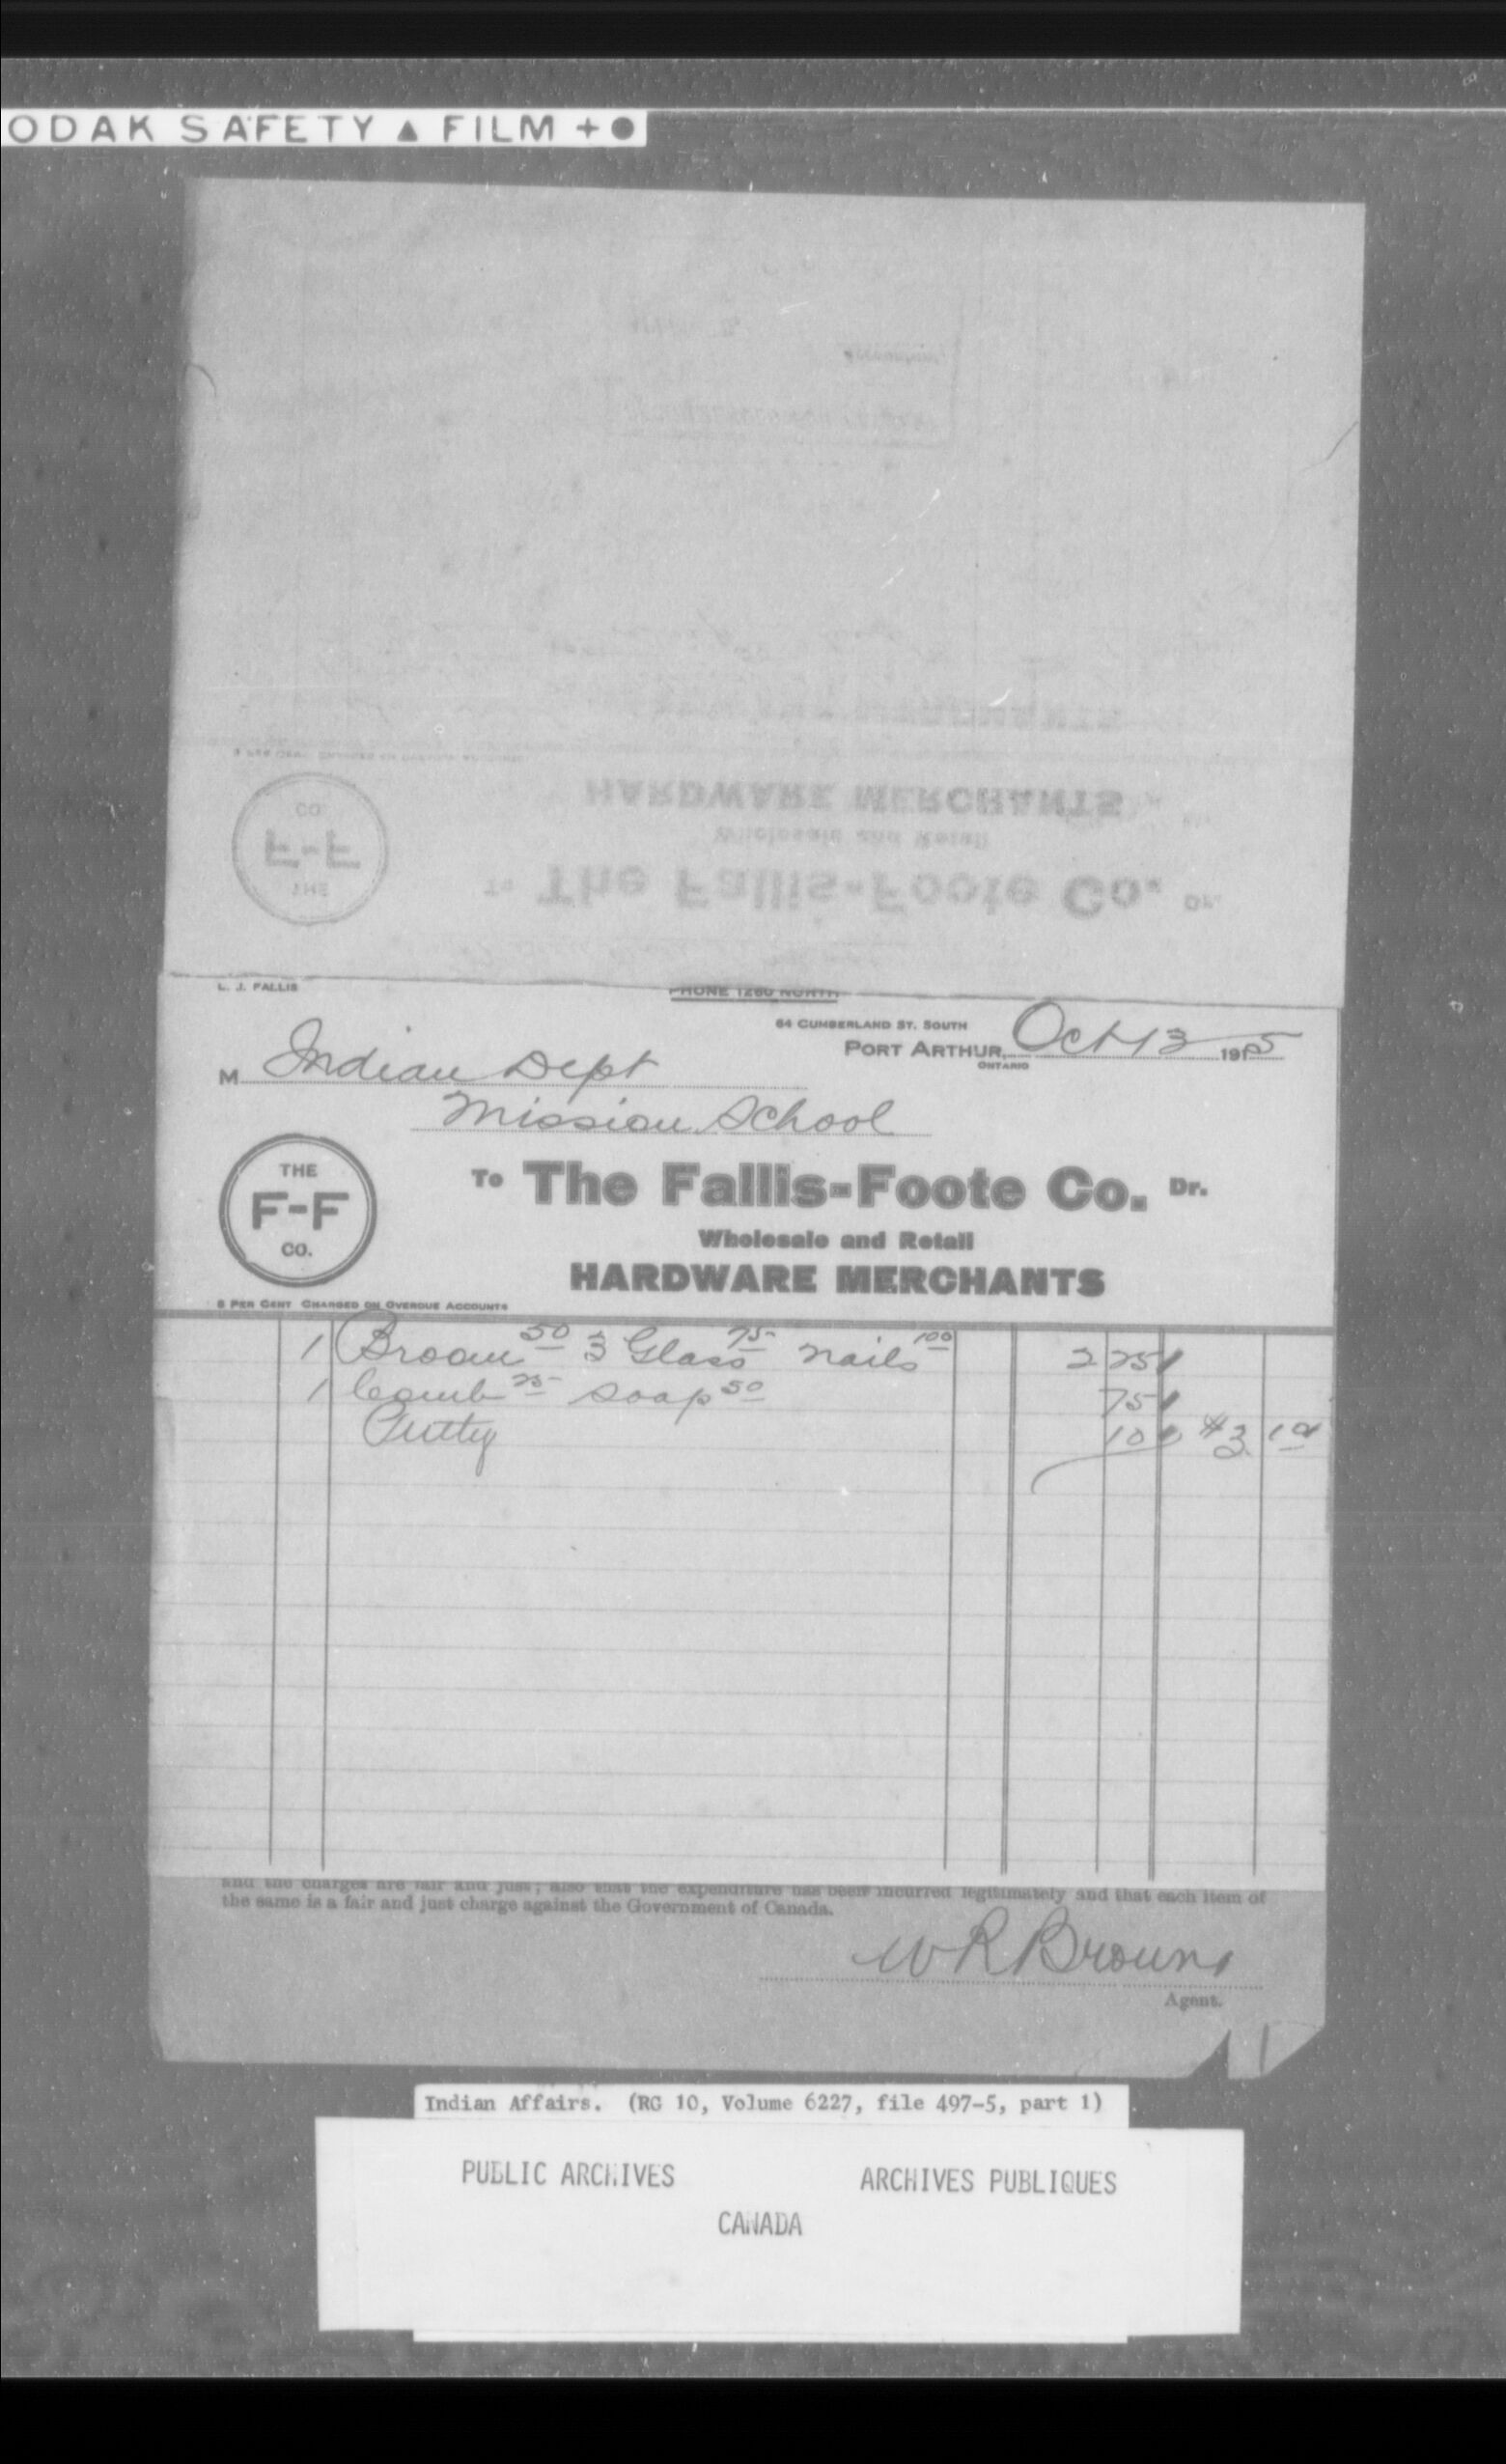 ODAK SAFETY ▲ FILM + ●
L. J. FALLIS
PHONE 1260 NORTH
64 CUMBERLAND ST. SOUTH
PORT ARTHUR, Oct 13 1915
ONTARIO
M Indian Dept
Mission School
THE
F-F
CO.
To The Fallis-Foote Co. Dr.
Wholesale and Retail
HARDWARE MERCHANTS
8 PER CENT CHARGED ON OVERDUE ACCOUNTS
1 Broom 50 3 Glass 75 nails 100 2 25
1 Comb 25 Soap 50 75
Putty 10 #3 10
and the charges are fair and just; also that the expenditure has been incurred legitimately and that each item of
the same is a fair and just charge against the Government of Canada.
W R Brown
Agent.
Indian Affairs. (RG 10, Volume 6227, file 497-5, part 1)
PUBLIC ARCHIVES ARCHIVES PUBLIQUES
CANADA